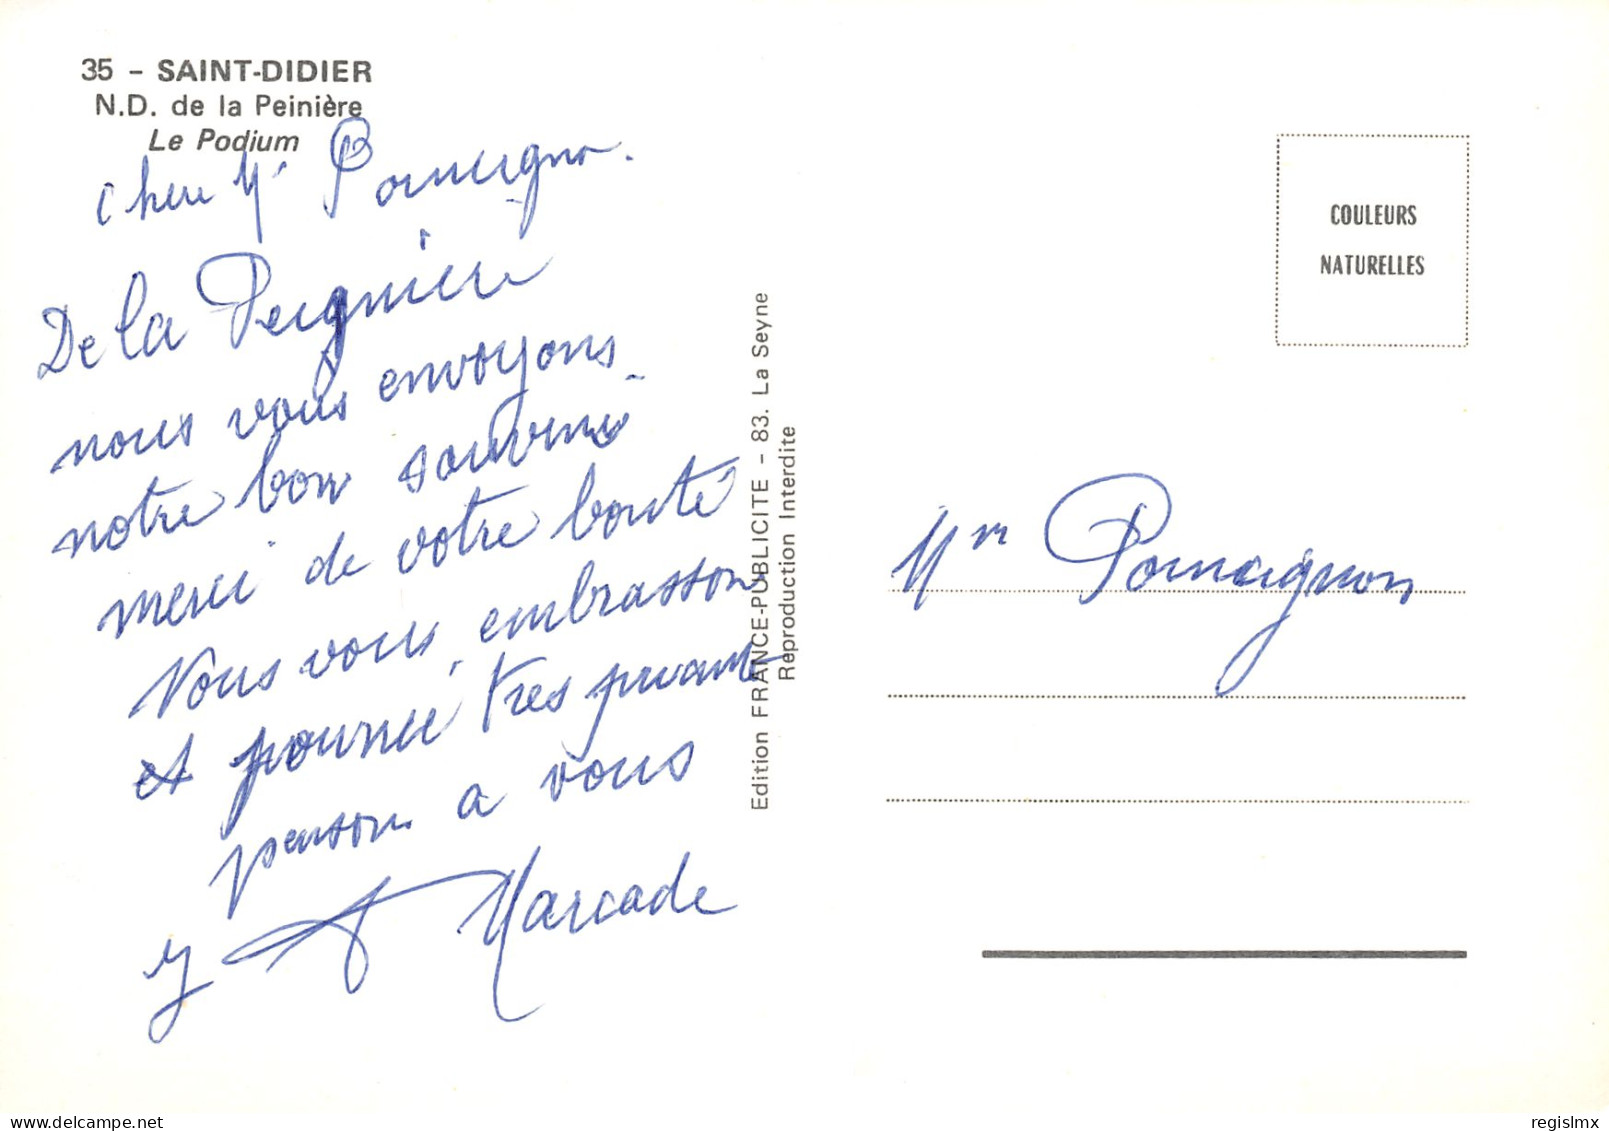 35 – SAINT-DIDIER
N.D. de la Peinière
Le Podium
Chere Mr Pomergnon.
De la Peignière
nous vous envoyons
notre bon souvenir
merci de votre bonté
Nous vous embrassons
et pournée tres
penson a vous
Marcade
Edition FRANCE-PUBLICITE – 83. La Seyne
Reproduction Interdite
COULEURS
NATURELLES
Mr Pomagnon
regislmx